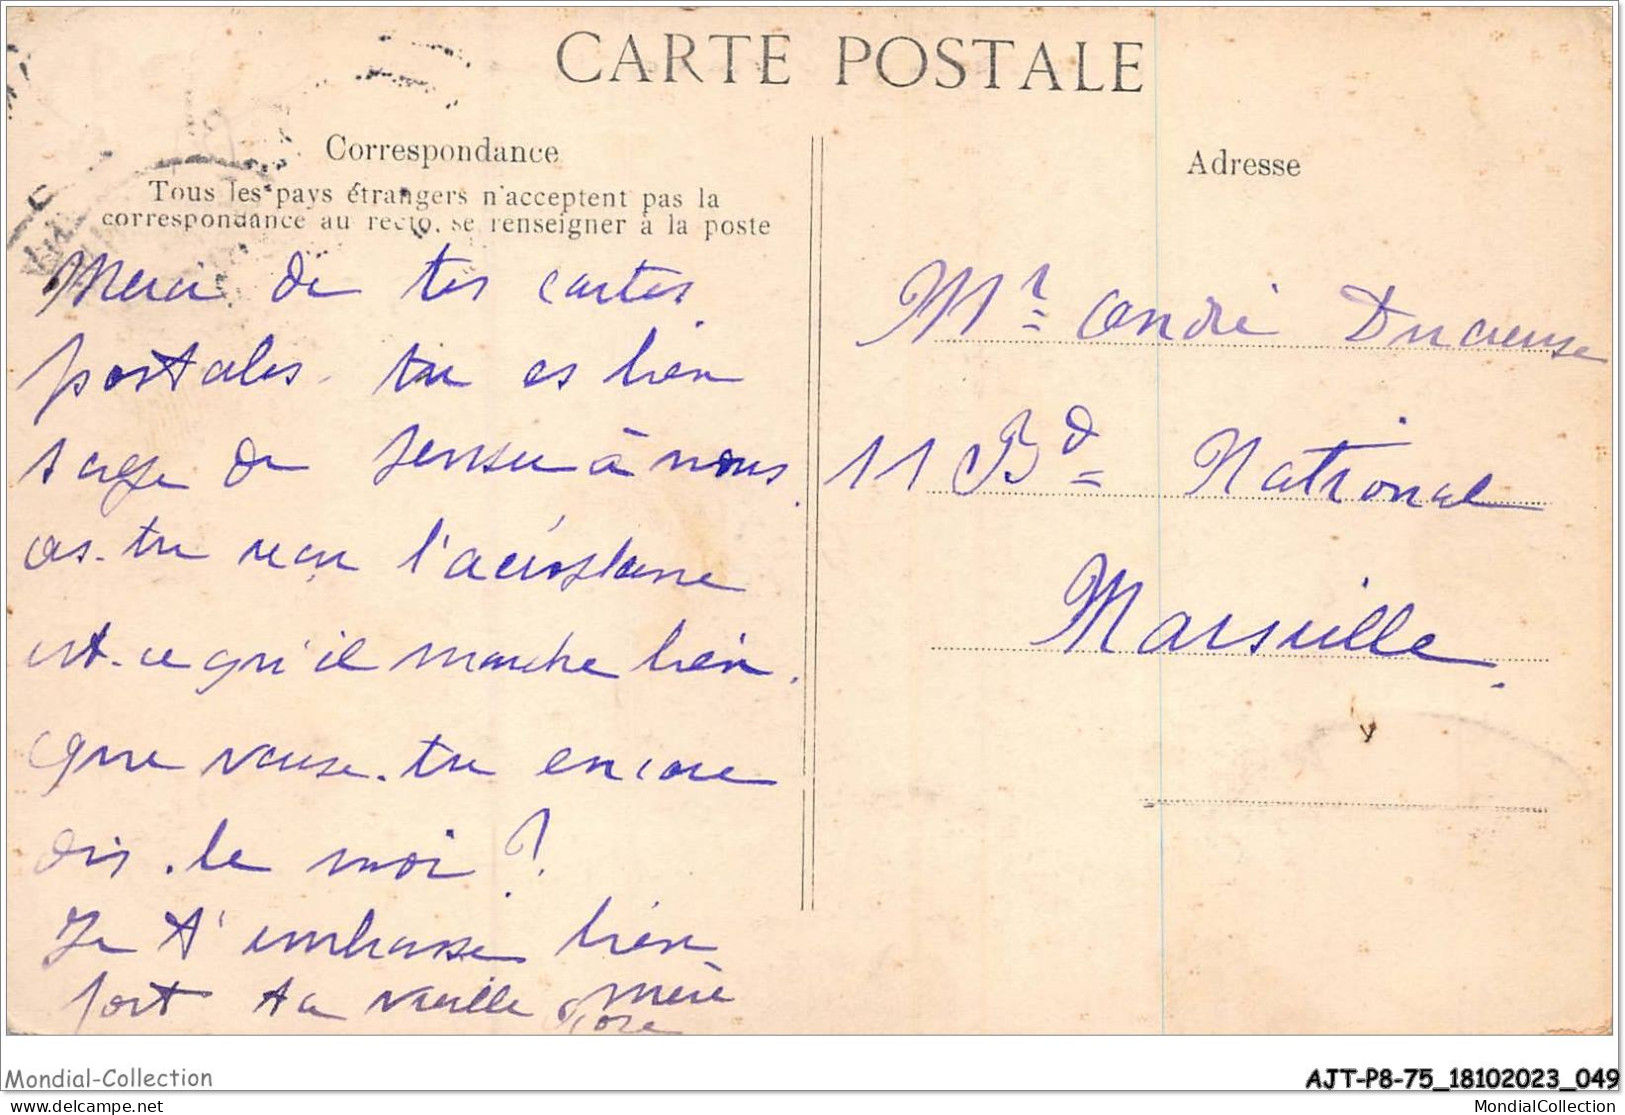 CARTE POSTALE
Correspondance
Tous les pays étrangers n'acceptent pas la
correspondance au recto, se renseigner à la poste
Merci de tes cartes
postales tu es bien
sage de penser à nous.
as-tu vu l'aéroplane
est-ce qu'il marche bien.
que pense-tu encore
dis-le moi ?
Je t'embrasse bien
fort ta vieille mère
Rose
Adresse
Mr André Ducreuse
11 Bd National
Marseille.
Mondial-Collection
delcampe.net
AJT-P8-75_18102023_049
MondialCollection